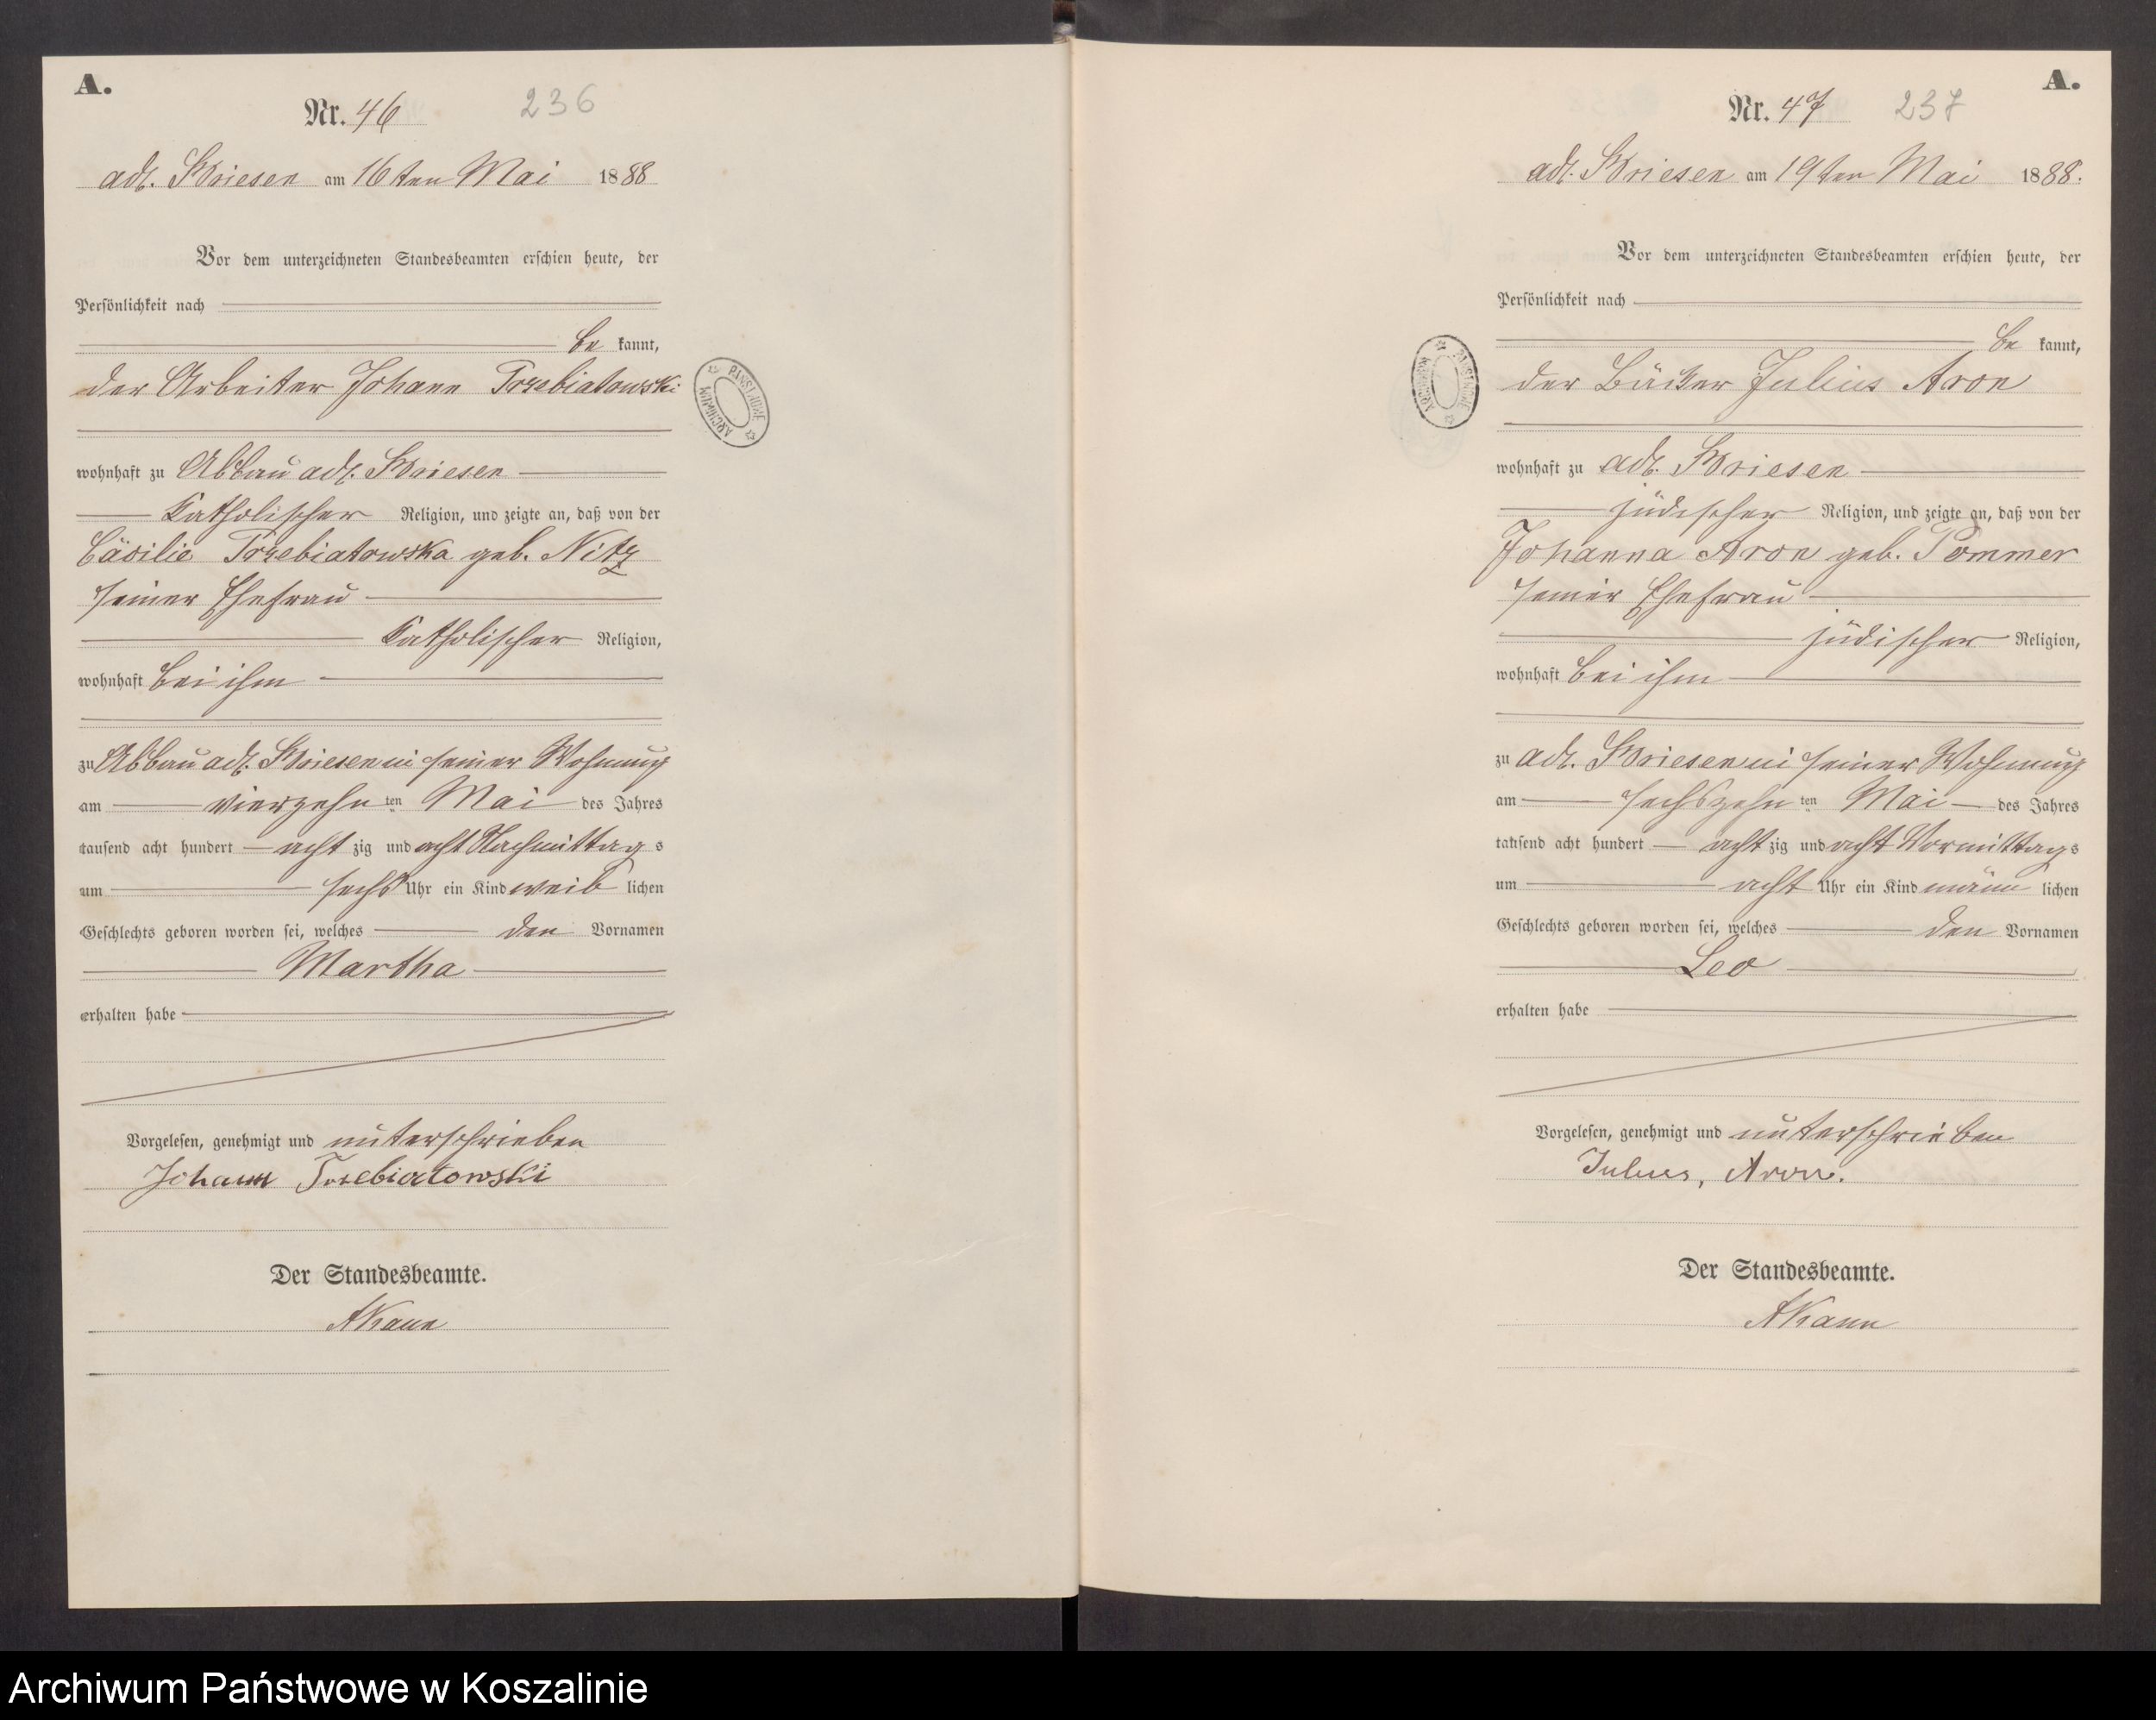 A.
Nr. 46 236
adl. Briesen am 16ten Mai 1888
Vor dem unterzeichneten Standesbeamten erschien heute, der
Persönlichkeit nach
be kannt,
der Arbeiter Johann Trzebiatowski
wohnhaft zu Abbau adl. Briesen
Katholischer Religion, und zeigte an, daß von der
Cäcilie Trzebiatowska geb. Nitz
seiner Ehefrau
Katholischer Religion,
wohnhaft bei ihm
zu Abbau adl. Briesen in seiner Wohnung
am vierzehn ten Mai des Jahres
tausend acht hundert acht zig und acht Nachmittag s
um sechs Uhr ein Kind weib lichen
Geschlechts geboren worden sei, welches den Vornamen
Martha
erhalten habe
Vorgelesen, genehmigt und unterschrieben
Johann Trzebiatowski
Der Standesbeamte.
ARCHIWUM PAŃSTWOWE
A.
Nr. 47 237
adl. Briesen am 19ten Mai 1888.
Vor dem unterzeichneten Standesbeamten erschien heute, der
Persönlichkeit nach
be kannt,
der Bäcker Julius Aron
wohnhaft zu adl. Briesen
jüdischer Religion, und zeigte an, daß von der
Johanna Aron geb. Pommer
seiner Ehefrau
jüdischer Religion,
wohnhaft bei ihm
zu adl. Briesen in seiner Wohnung
am sechszehn ten Mai des Jahres
tausend acht hundert acht zig und acht Vormittag s
um acht Uhr ein Kind männ lichen
Geschlechts geboren worden sei, welches den Vornamen
Leo
erhalten habe
Vorgelesen, genehmigt und unterschrieben
Julius, Aron.
Der Standesbeamte.
ARCHIWUM PAŃSTWOWE
Archiwum Państwowe w Koszalinie